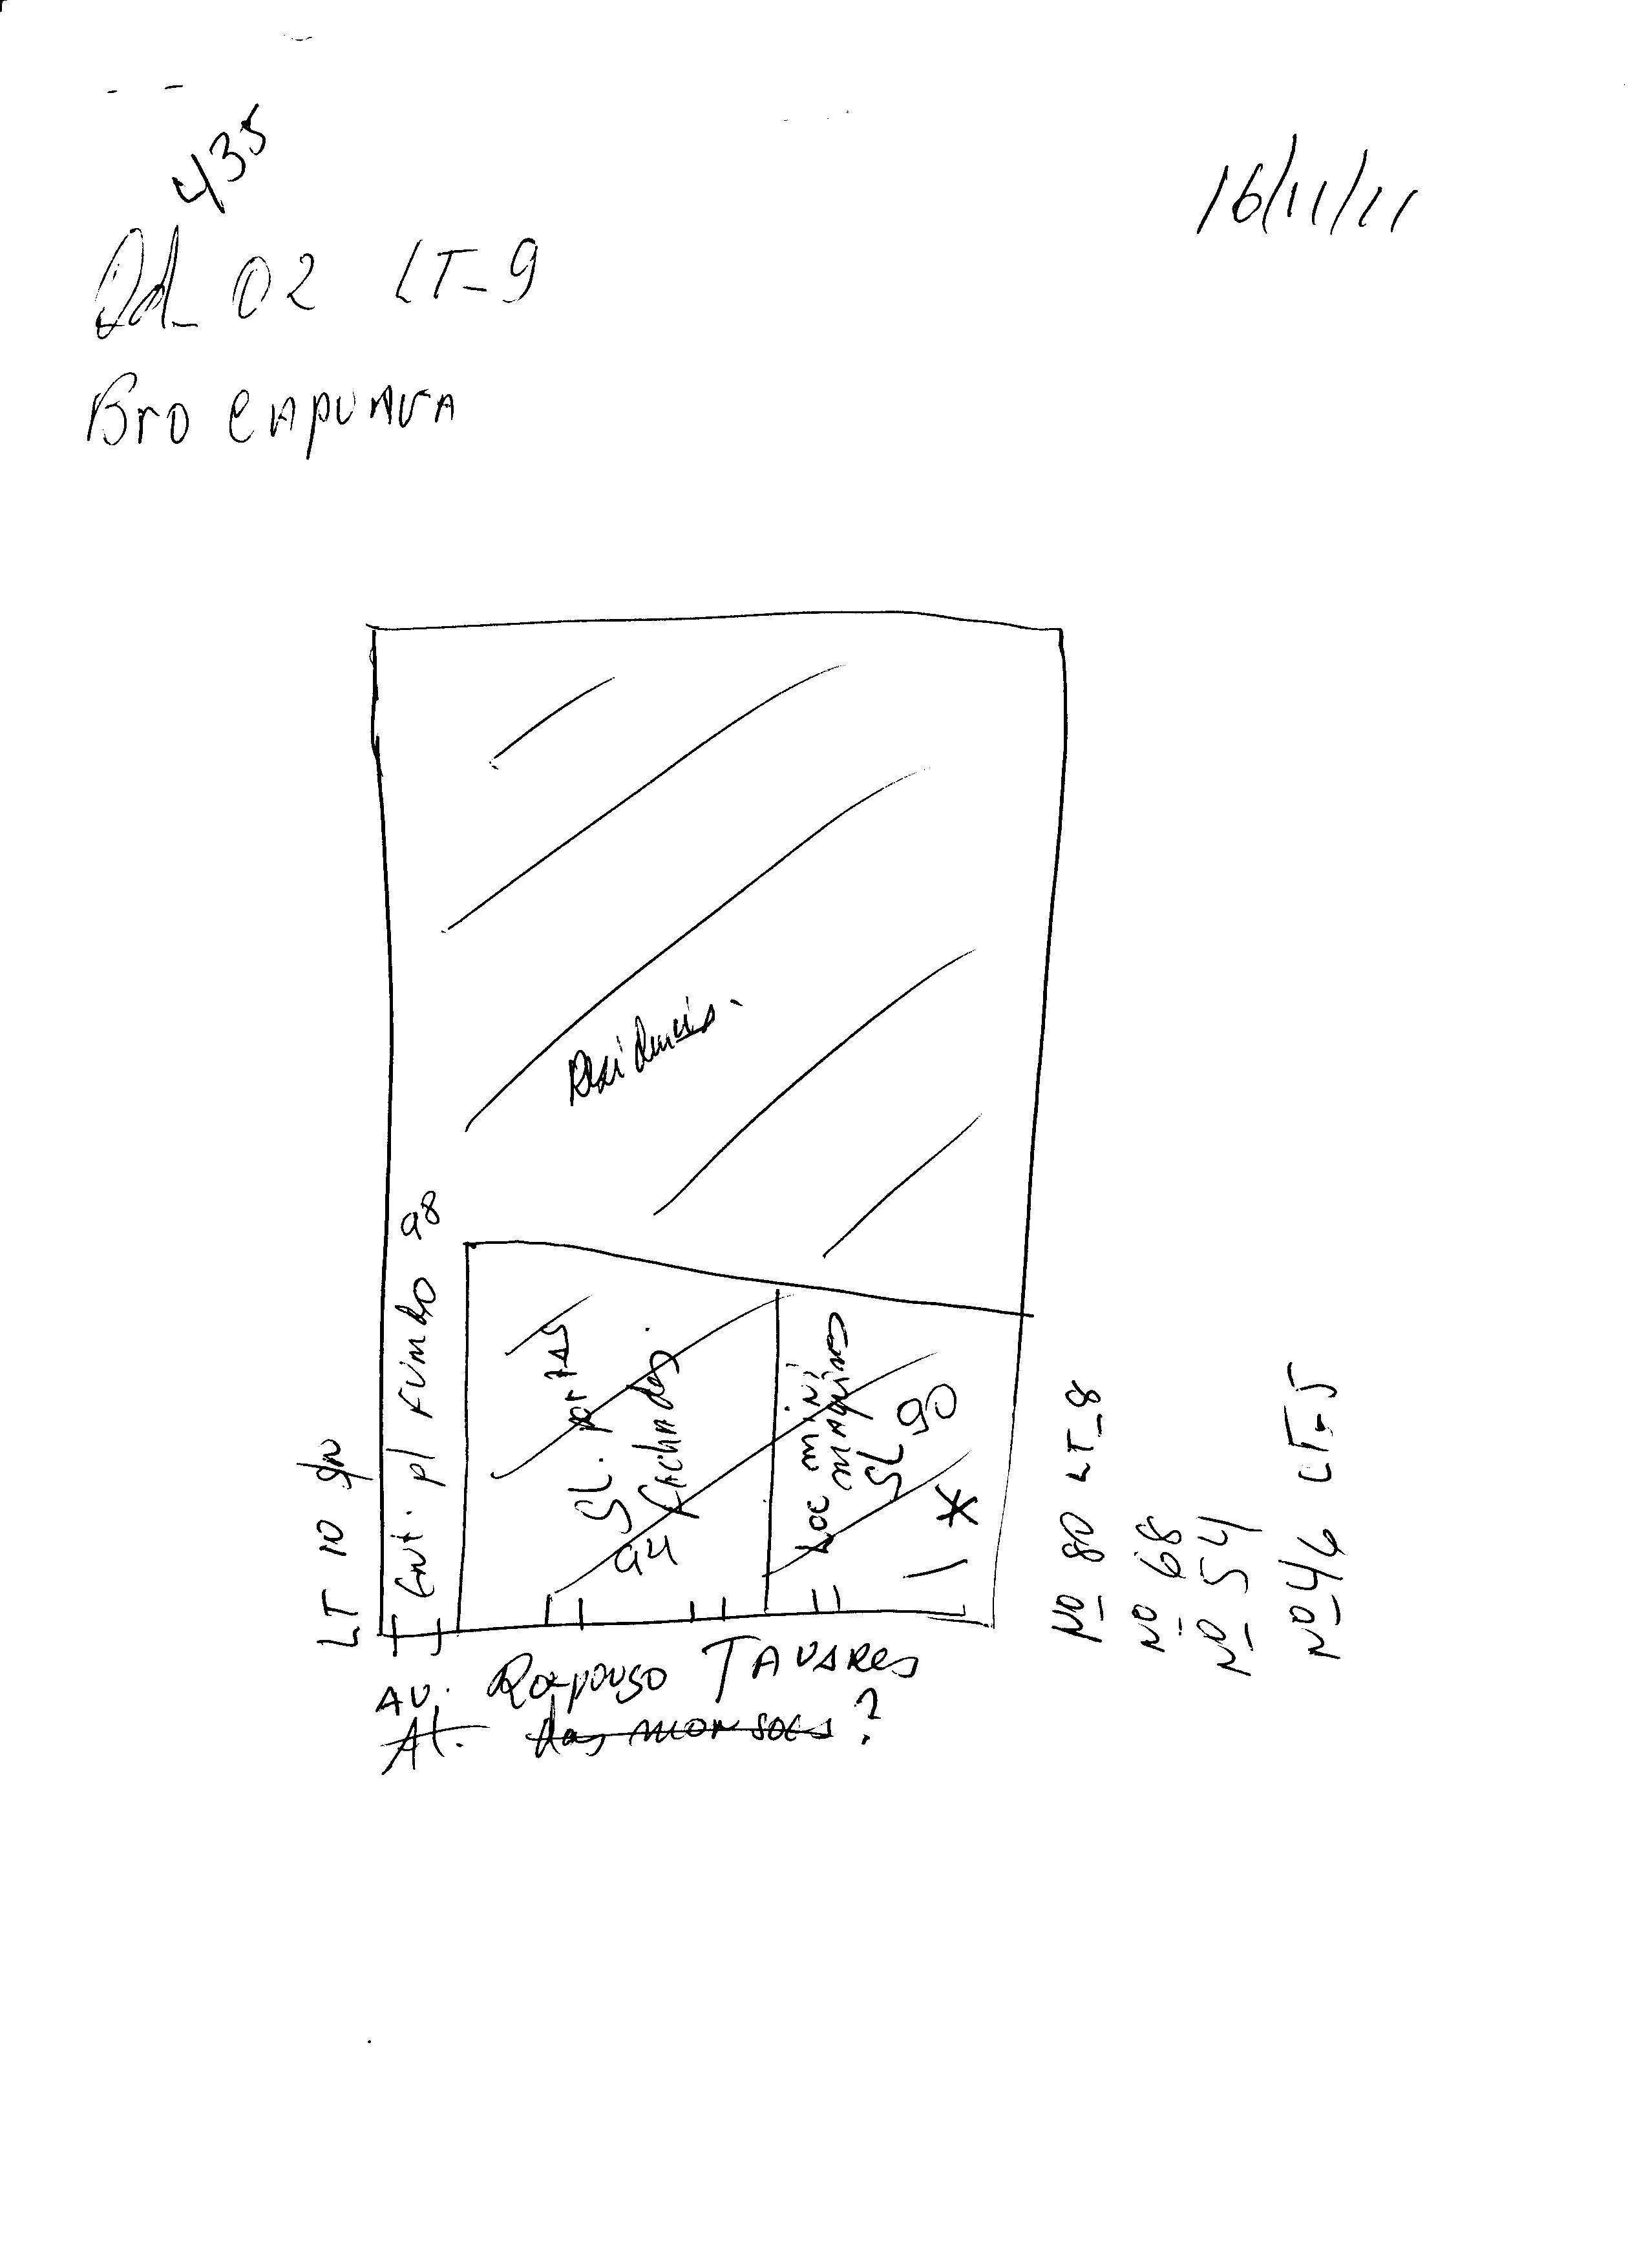 435
16/11/11
Qd_ 02 LT_9
Bro CAPUAVA
Residencia.
LT 10 S/N
Ent. p/ FUNDO 98
SL. portas
fechadas.
94
Loc mini
maquinas
SL 90
Nº 80 LT_8
Nº 68
Nº 54
Nº 46 LT_5
AV. Raposo TAVARES
Al. das ?